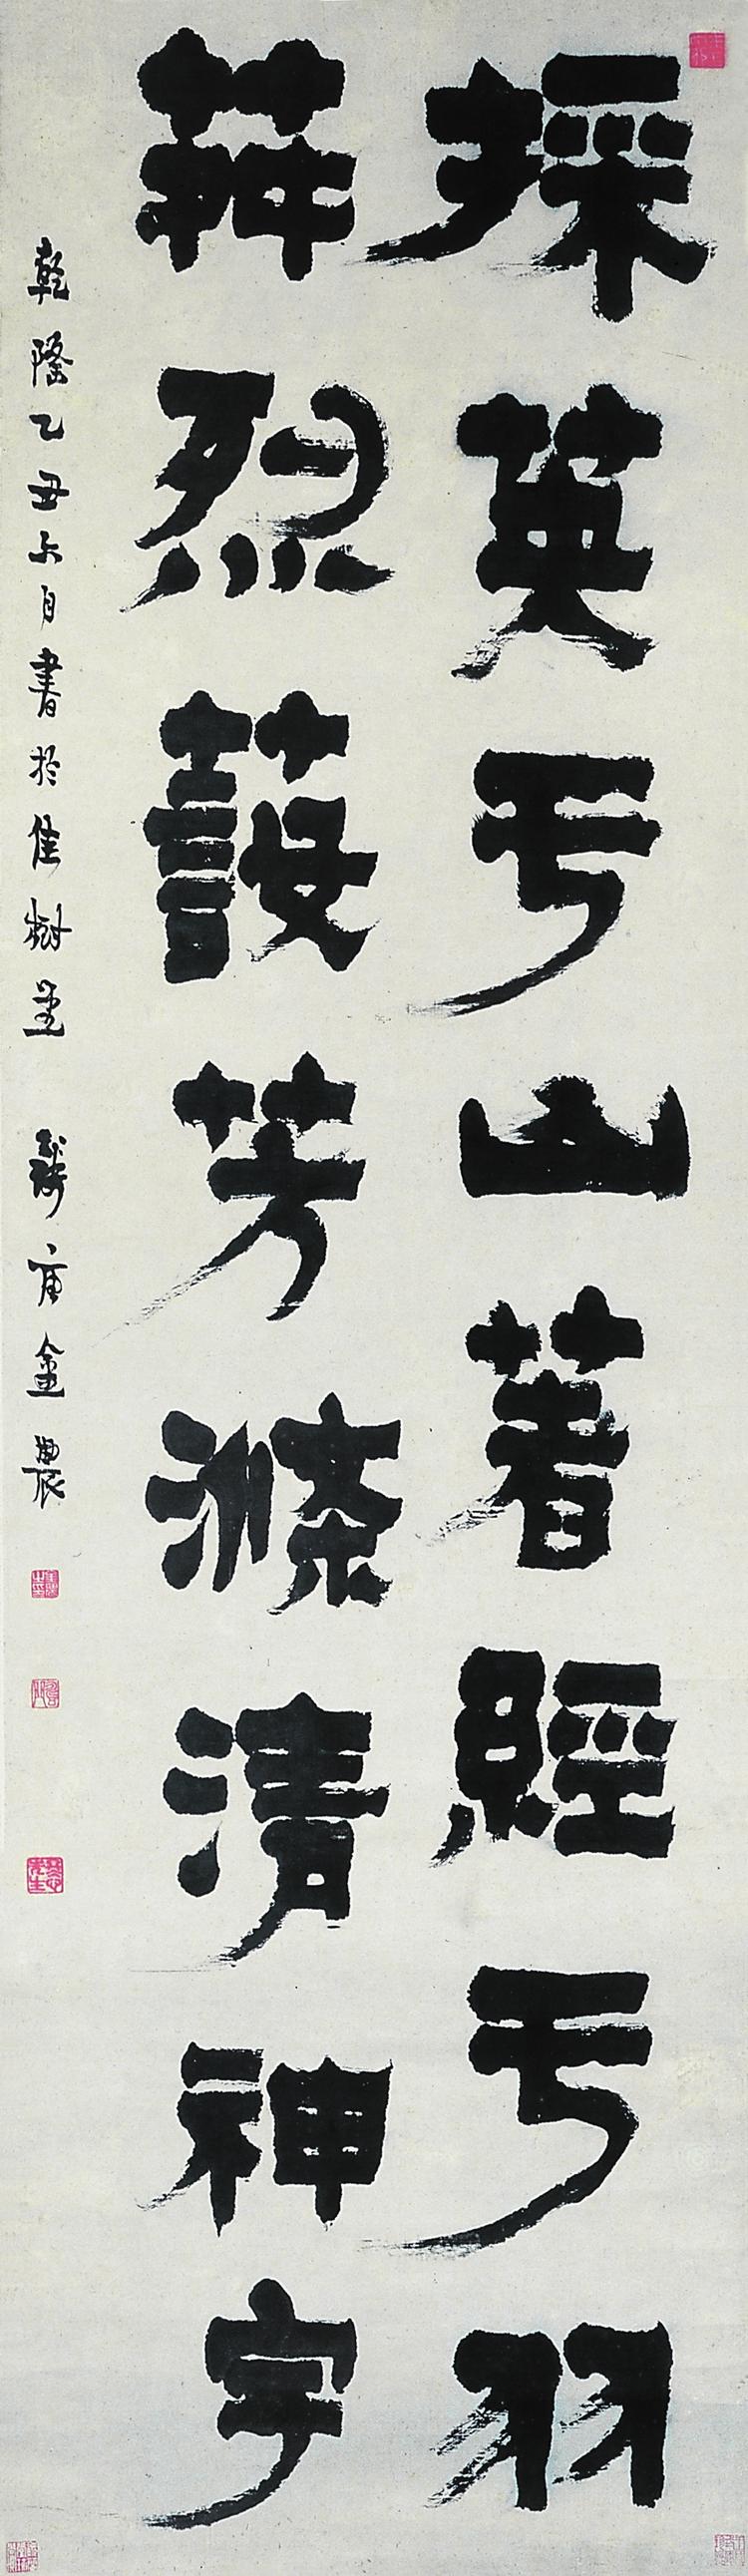 採英于山著經于羽
荈烈蔎芳滌清神宇
乾隆乙丑六月書於佳樹堂 壽門金農